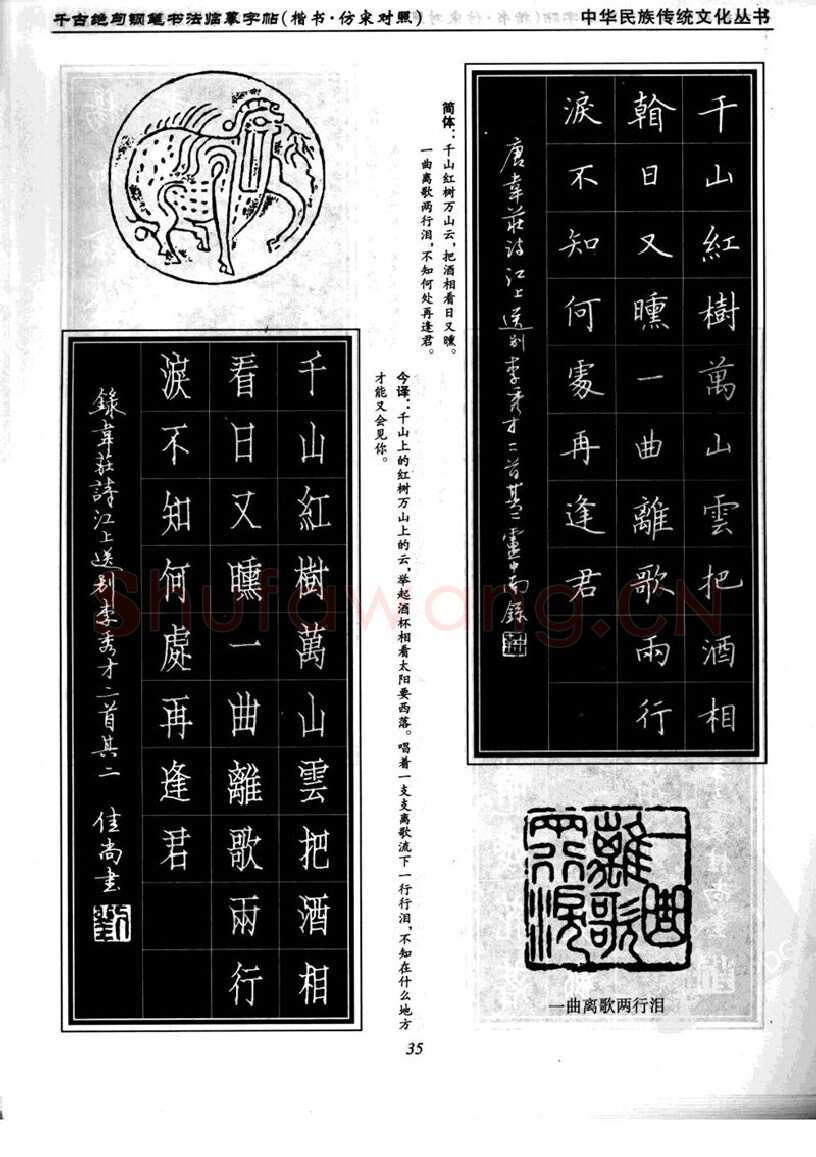 千古绝句钢笔书法临摹字帖(楷书·仿宋对照)
中华民族传统文化丛书
千山紅樹萬山雲把酒相
日又曛一曲離歌兩行
淚不知何處再逢君
唐韋莊詩江上送别李秀才二首其二 盧中南錄
简体：千山红树万山云，把酒相看日又曛。
一曲离歌两行泪，不知何处再逢君。
今译：千山上的红树万山上的云，举起酒杯相看太阳要西落。唱着一支支离歌流下一行行泪，不知在什么地方
才能又会见你。
千山紅樹萬山雲把酒相
看日又曛一曲離歌兩行
淚不知何處再逢君
錄韋莊詩江上送别李秀才二首其二 佳尚書
劉
一曲
離歌
兩行淚
一曲离歌两行泪
35
Shufawang.CN